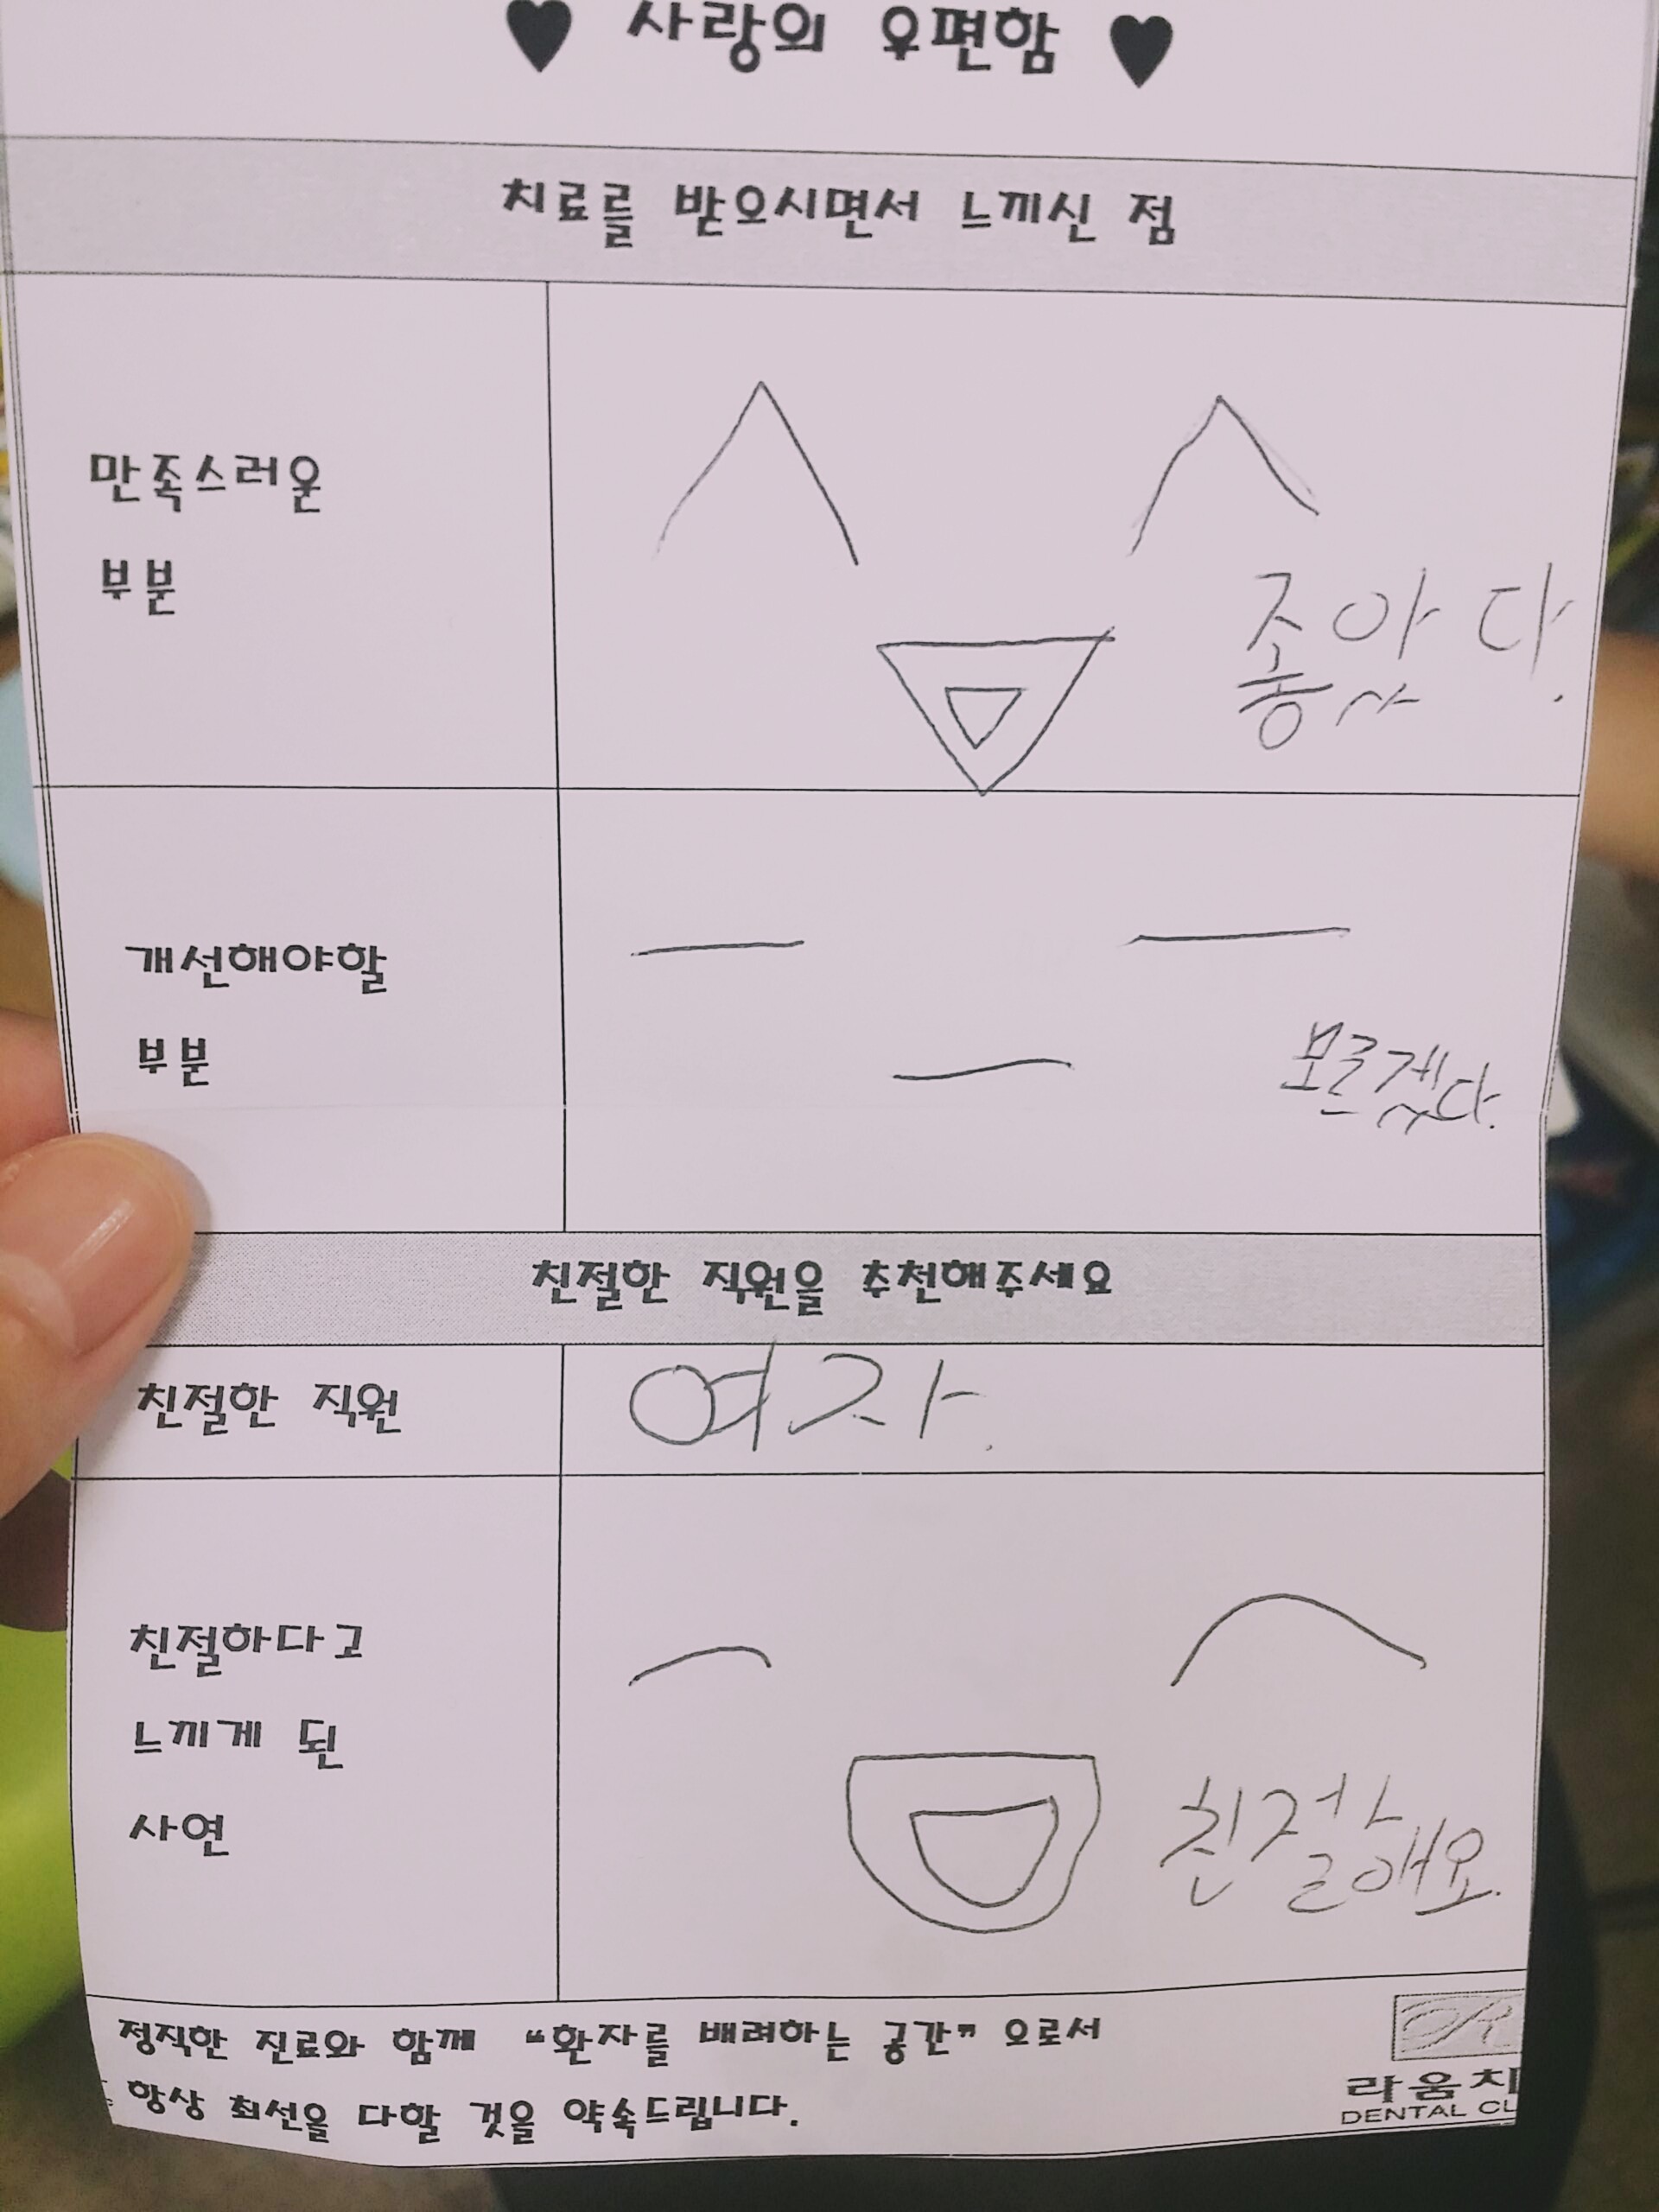 ♥ 사랑의 우편함 ♥
치료를 받으시면서 느끼신 점
만족스러운
부분
좋았다.
개선해야할
부분
모르겠다.
친절한 직원을 추천해주세요
친절한 직원
여자.
친절하다고
느끼게 된
사연
친절해요.
정직한 진료와 함께 “환자를 배려하는 공간” 으로서
항상 최선을 다할 것을 약속드립니다.
라움치
DENTAL CL